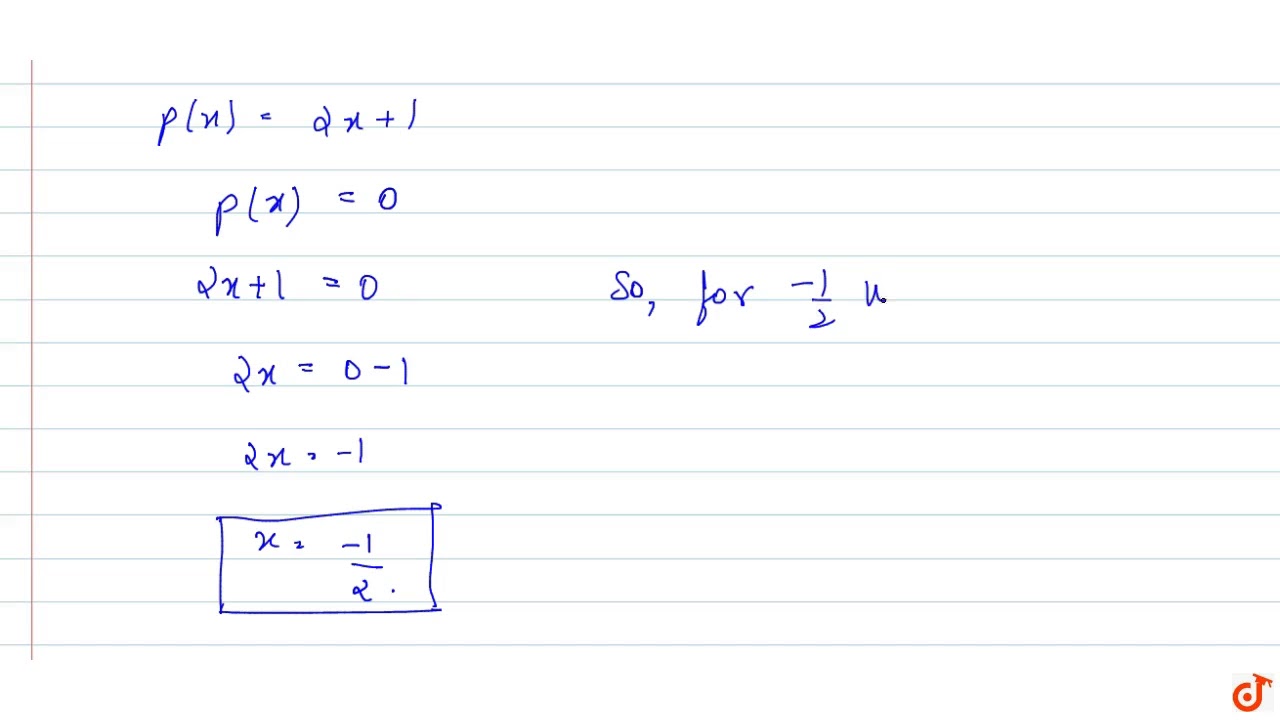 p(x) = 2x+1
p(x) = 0
2x+1 = 0
2x = 0-1
2x = -1
x = -1/2.
So, for -1/2